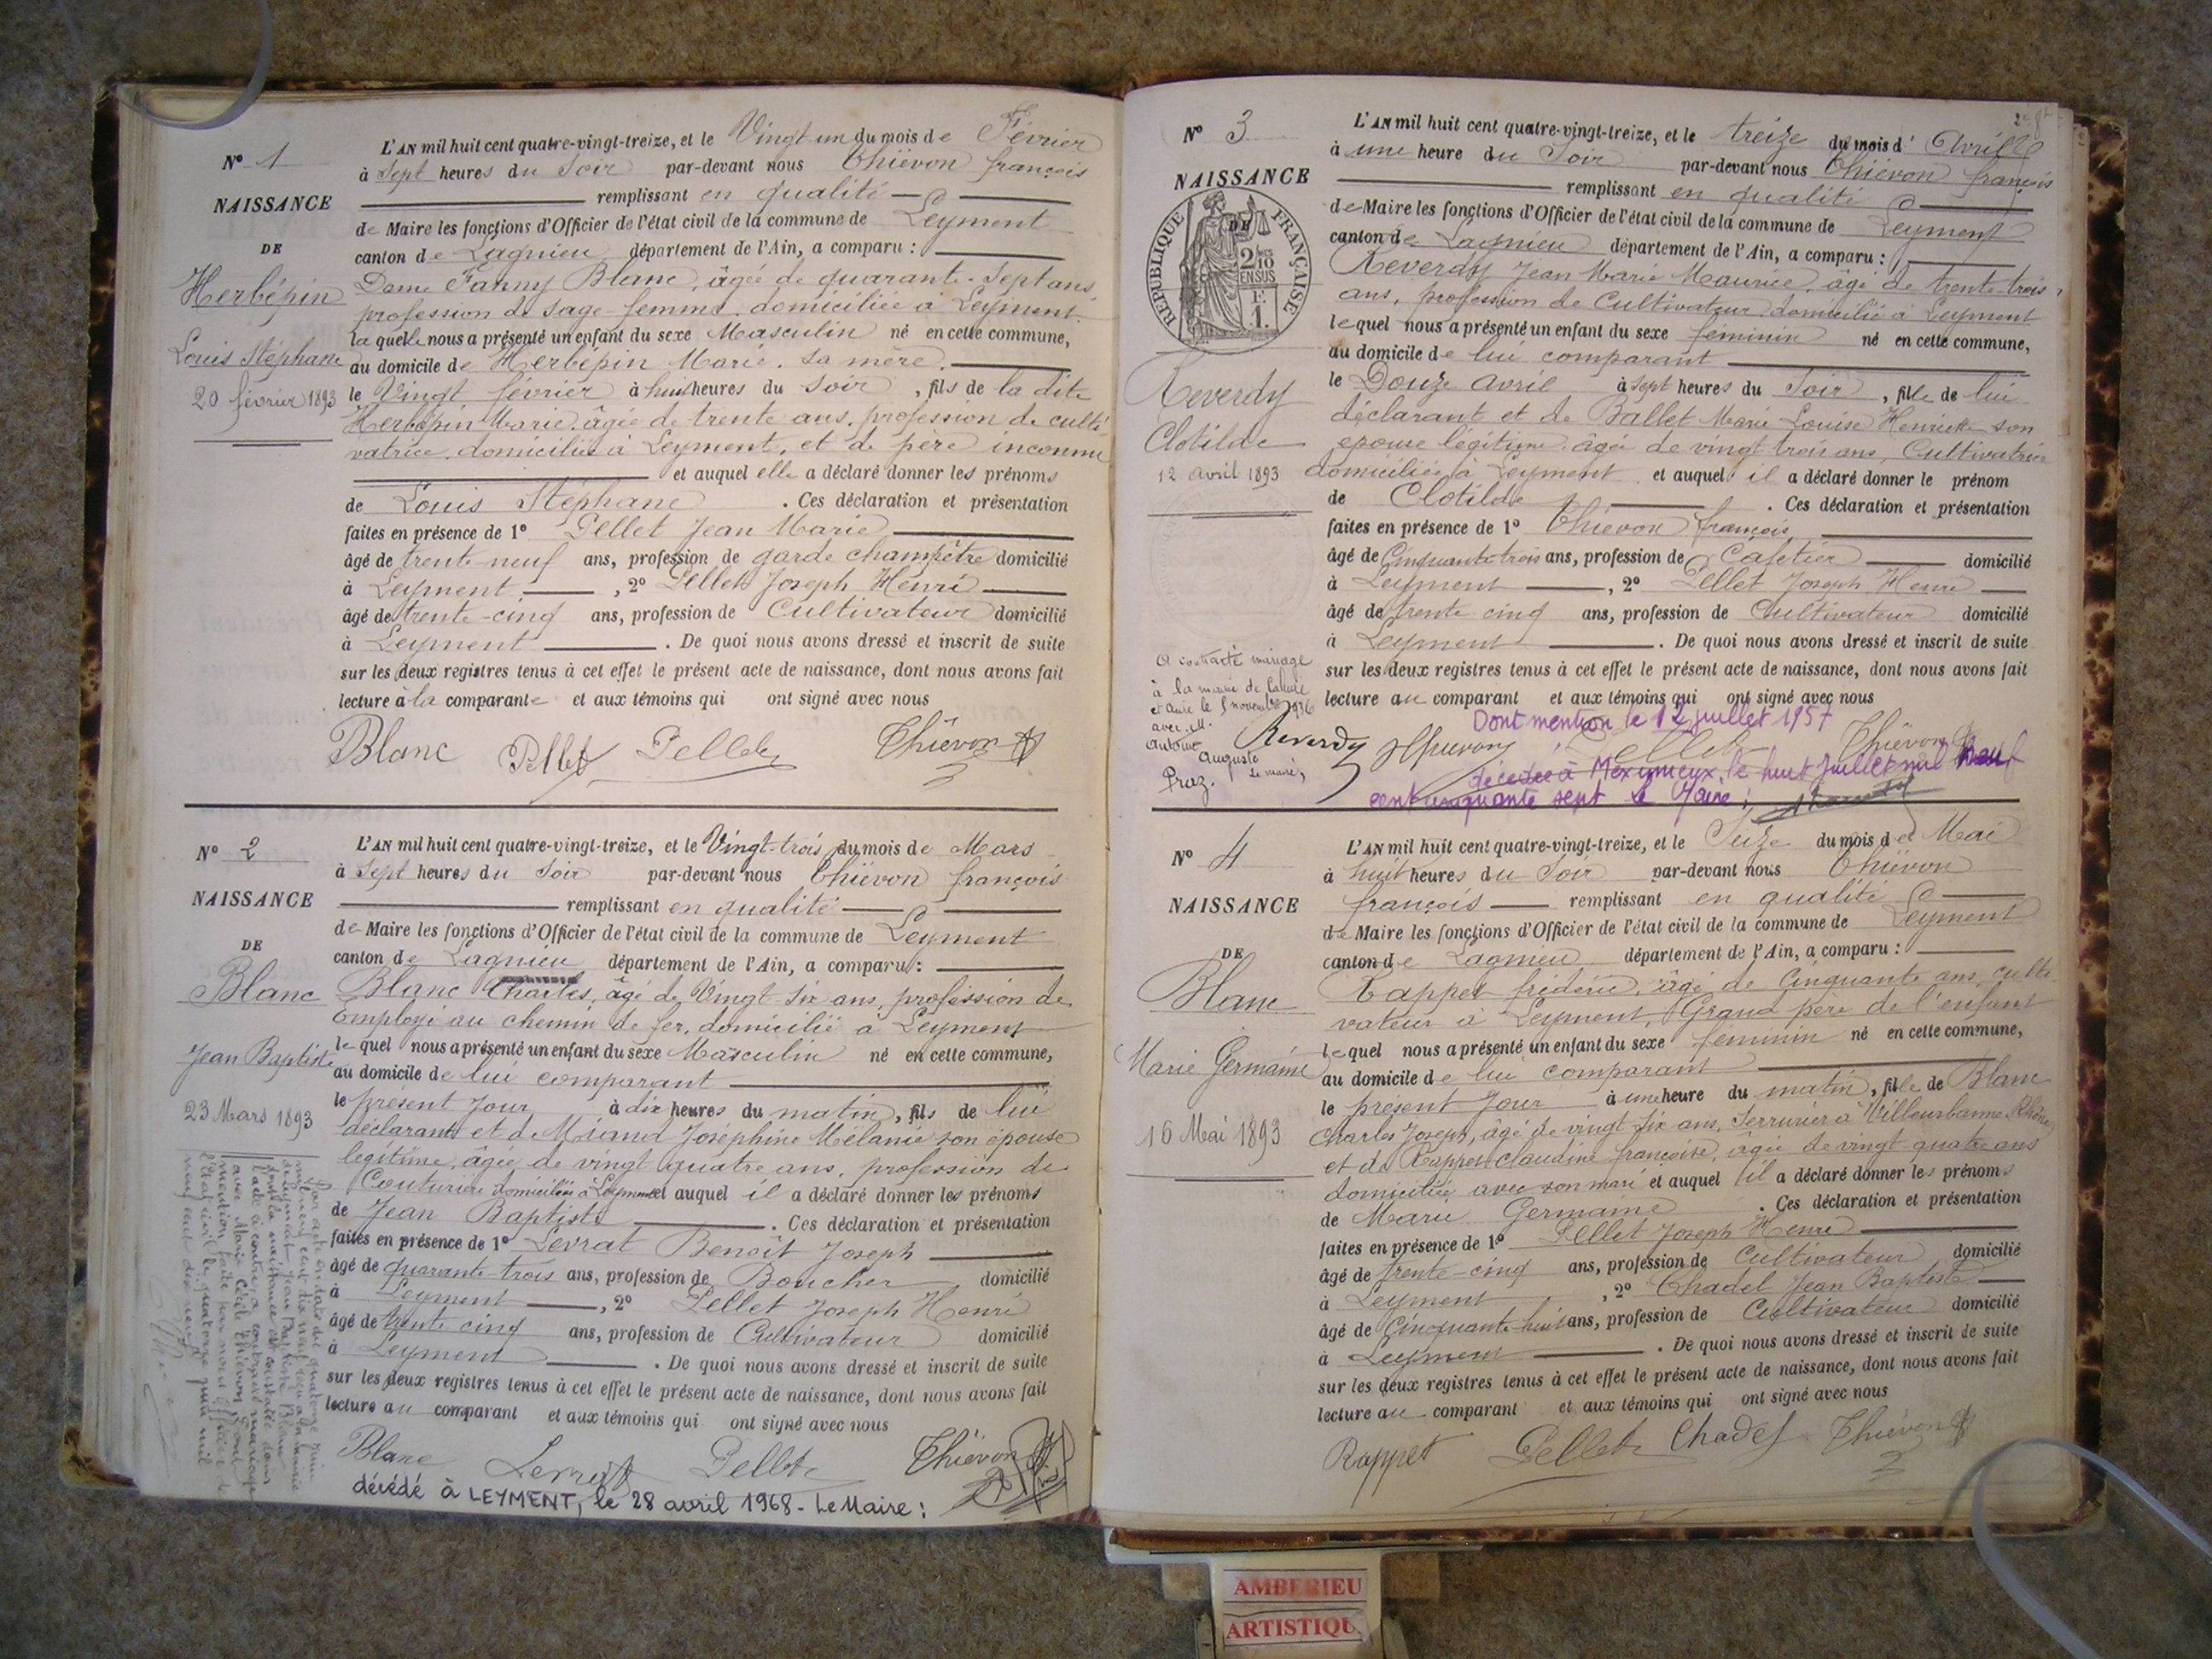 N° 1
NAISSANCE
DE
Herbépin
Louis Stéphane
20 février 1893
L'AN mil huit cent quatre-vingt-treize, et le Vingt un du mois de Février
à Sept heures du Soir par-devant nous Thiévon françois
remplissant en qualité
de Maire les fonctions d'Officier de l'état civil de la commune de Leyment
canton de Lagnieu département de l'Ain, a comparu :
Dame Fanny Blanc, âgée de quarante-sept ans,
profession de sage-femme, domiciliée à Leyment.
laquelle nous a présenté un enfant du sexe Masculin né en cette commune,
au domicile de Herbépin Marie. Sa mère.
le Vingt février à huit heures du Soir, fils de la dite
Herbépin Marie, âgée de trente ans, profession de culti-
vatrice, domiciliée à Leyment, et de père inconnu
et auquel elle a déclaré donner les prénoms
de Louis Stéphane. Ces déclaration et présentation
faites en présence de 1° Pellet Jean Marie
âgé de trente neuf ans, profession de garde champêtre domicilié
à Leyment, 2° Pellet Joseph Henri
âgé de trente-cinq ans, profession de Cultivateur domicilié
à Leyment. De quoi nous avons dressé et inscrit de suite
sur les deux registres tenus à cet effet le présent acte de naissance, dont nous avons fait
lecture à la comparante et aux témoins qui ont signé avec nous
Blanc Pellet Pellet Thiévon
N° 2
NAISSANCE
DE
Blanc
Jean Baptiste
23 Mars 1893
L'AN mil huit cent quatre-vingt-treize, et le Vingt-trois du mois de Mars
à Sept heures du Soir par-devant nous Thiévon françois
remplissant en qualité
de Maire les fonctions d'Officier de l'état civil de la commune de Leyment
canton de Lagnieu département de l'Ain, a comparu :
Blanc Charles, âgé de Vingt six ans, profession de
Employé au chemin de fer, domicilié à Leyment
lequel nous a présenté un enfant du sexe Masculin né en cette commune,
au domicile de lui comparant
le présent Jour à dix heures du matin, fils de lui
déclarant et de Joséphine Mélanie son épouse
légitime, âgée de vingt quatre ans, profession de
Couturière domiciliée à Leyment et auquel il a déclaré donner les prénoms
de Jean Baptiste. Ces déclaration et présentation
faites en présence de 1° Levrat Benoît Joseph
âgé de quarante-trois ans, profession de Boucher domicilié
à Leyment, 2° Pellet Joseph Henri
âgé de trente cinq ans, profession de Cultivateur domicilié
à Leyment. De quoi nous avons dressé et inscrit de suite
sur les deux registres tenus à cet effet le présent acte de naissance, dont nous avons fait
lecture au comparant et aux témoins qui ont signé avec nous
Blanc Levrat Pellet Thiévon
décédé à LEYMENT, le 28 avril 1968 - Le Maire :
N° 3
NAISSANCE
DE
RÉPUBLIQUE FRANÇAISE
2/10
EN SUS
F.
1.
Reverdy
Clotilde
12 avril 1893
A contracté mariage
à la mairie de Caluire
et Cuire le 5 novembre 1936
avec M.
Antoine
Auguste
Praz.
Le maire,
L'AN mil huit cent quatre-vingt-treize, et le treize du mois d'Avril
à une heure du Soir par-devant nous Thiévon françois
remplissant en qualité
de Maire les fonctions d'Officier de l'état civil de la commune de Leyment
canton de Lagnieu département de l'Ain, a comparu :
Reverdy Jean Marie Maurice, âgé de trente-trois
ans, profession de Cultivateur, domicilié à Leyment
lequel nous a présenté un enfant du sexe féminin né en cette commune,
au domicile de lui comparant
le Douze avril à sept heures du Soir, fille de lui
déclarant et de Ballet Marie Louise Henriette son
épouse légitime, âgée de vingt trois ans, Cultivatrice
domiciliée à Leyment et auquel il a déclaré donner le prénom
de Clotilde. Ces déclaration et présentation
faites en présence de 1° Thiévon françois
âgé de Cinquante trois ans, profession de Cafetier domicilié
à Leyment, 2° Pellet Joseph Henri
âgé de trente cinq ans, profession de Cultivateur domicilié
à Leyment. De quoi nous avons dressé et inscrit de suite
sur les deux registres tenus à cet effet le présent acte de naissance, dont nous avons fait
lecture au comparant et aux témoins qui ont signé avec nous
Dont mention le 12 juillet 1957
Reverdy Thiévon Pellet Thiévon
décédée à Meximieux, le huit juillet mil neuf
cent cinquante sept Le Maire ;
N° 4
NAISSANCE
DE
Blanc
Marie Germaine
16 Mai 1893
L'AN mil huit cent quatre-vingt-treize, et le Seize du mois de Mai
à huit heures du Soir par-devant nous Thiévon
françois remplissant en qualité
de Maire les fonctions d'Officier de l'état civil de la commune de Leyment
canton de Lagnieu département de l'Ain, a comparu :
Rappet frédéric, âgé de Cinquante ans, culti-
vateur à Leyment, Grand père de l'enfant
lequel nous a présenté un enfant du sexe féminin né en cette commune,
au domicile de lui comparant
le présent Jour à une heure du matin, fille de Blanc
Charles Joseph, âgé de vingt six ans, Serrurier à Villeurbanne Rhône
et de Rappet Claudine françoise, âgée de vingt quatre ans
domiciliée avec son mari et auquel il a déclaré donner les prénoms
de Marie Germaine. Ces déclaration et présentation
faites en présence de 1° Pellet Joseph Henri
âgé de trente-cinq ans, profession de Cultivateur domicilié
à Leyment, 2° Chadel Jean Baptiste
âgé de Cinquante-huit ans, profession de Cultivateur domicilié
à Leyment. De quoi nous avons dressé et inscrit de suite
sur les deux registres tenus à cet effet le présent acte de naissance, dont nous avons fait
lecture au comparant et aux témoins qui ont signé avec nous
Rappet Pellet Chadel Thiévon
AMBERIEU
ARTISTIQU